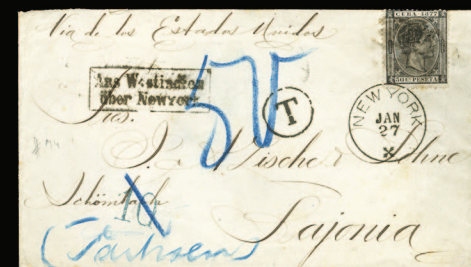 Via de los Estados Unidos
CUBA 1877
50 C. PESETA
Aus Westindien
über Newyork
T
NEW YORK
JAN
27
Sres.
J. Wischer &
Schömbach
10
Sajonia
(Sachsen)